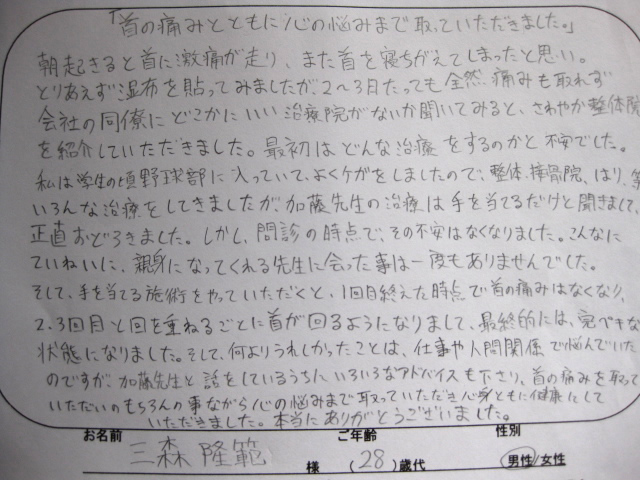 「首の痛みとともに心の悩みまで取っていただきました。」
朝起きると首に激痛が走り、また首を寝ちがえてしまったと思い。
とりあえず湿布を貼ってみましたが、2〜3日たっても全然痛みも取れず
会社の同僚にどこかにいい治療院がないか聞いてみると、さわやか整体院
を紹介していただきました。最初はどんな治療をするのかと不安でした。
私は学生の頃野球部に入っていて、よくケガをしましたので、整体、接骨院、はり、等
いろんな治療をしてきましたが、加藤先生の治療は手を当てるだけと聞きまして、
正直おどろきました。しかし、問診の時点で、その不安はなくなりました。こんなに
ていねいに、親身になってくれる先生に会った事は一度もありませんでした。
そして、手を当てる施術をやっていただくと、1回目終えた時点で首の痛みはなくなり、
2.3回目と回を重ねるごとに首が回るようになりまして、最終的には、完ぺきな
状態になりました。そして、何よりうれしかったことは、仕事や人間関係で悩んでいた
のですが、加藤先生と話をしているうちにいろいろなアドバイスも下さり、首の痛みを取って
いただいのもちろんの事ながら心の悩みまで取っていただき心身ともに健康にして
いただきました。本当にありがとうございました。
お名前 三森隆範 様 ご年齢 (28)歳代 性別 男性/女性